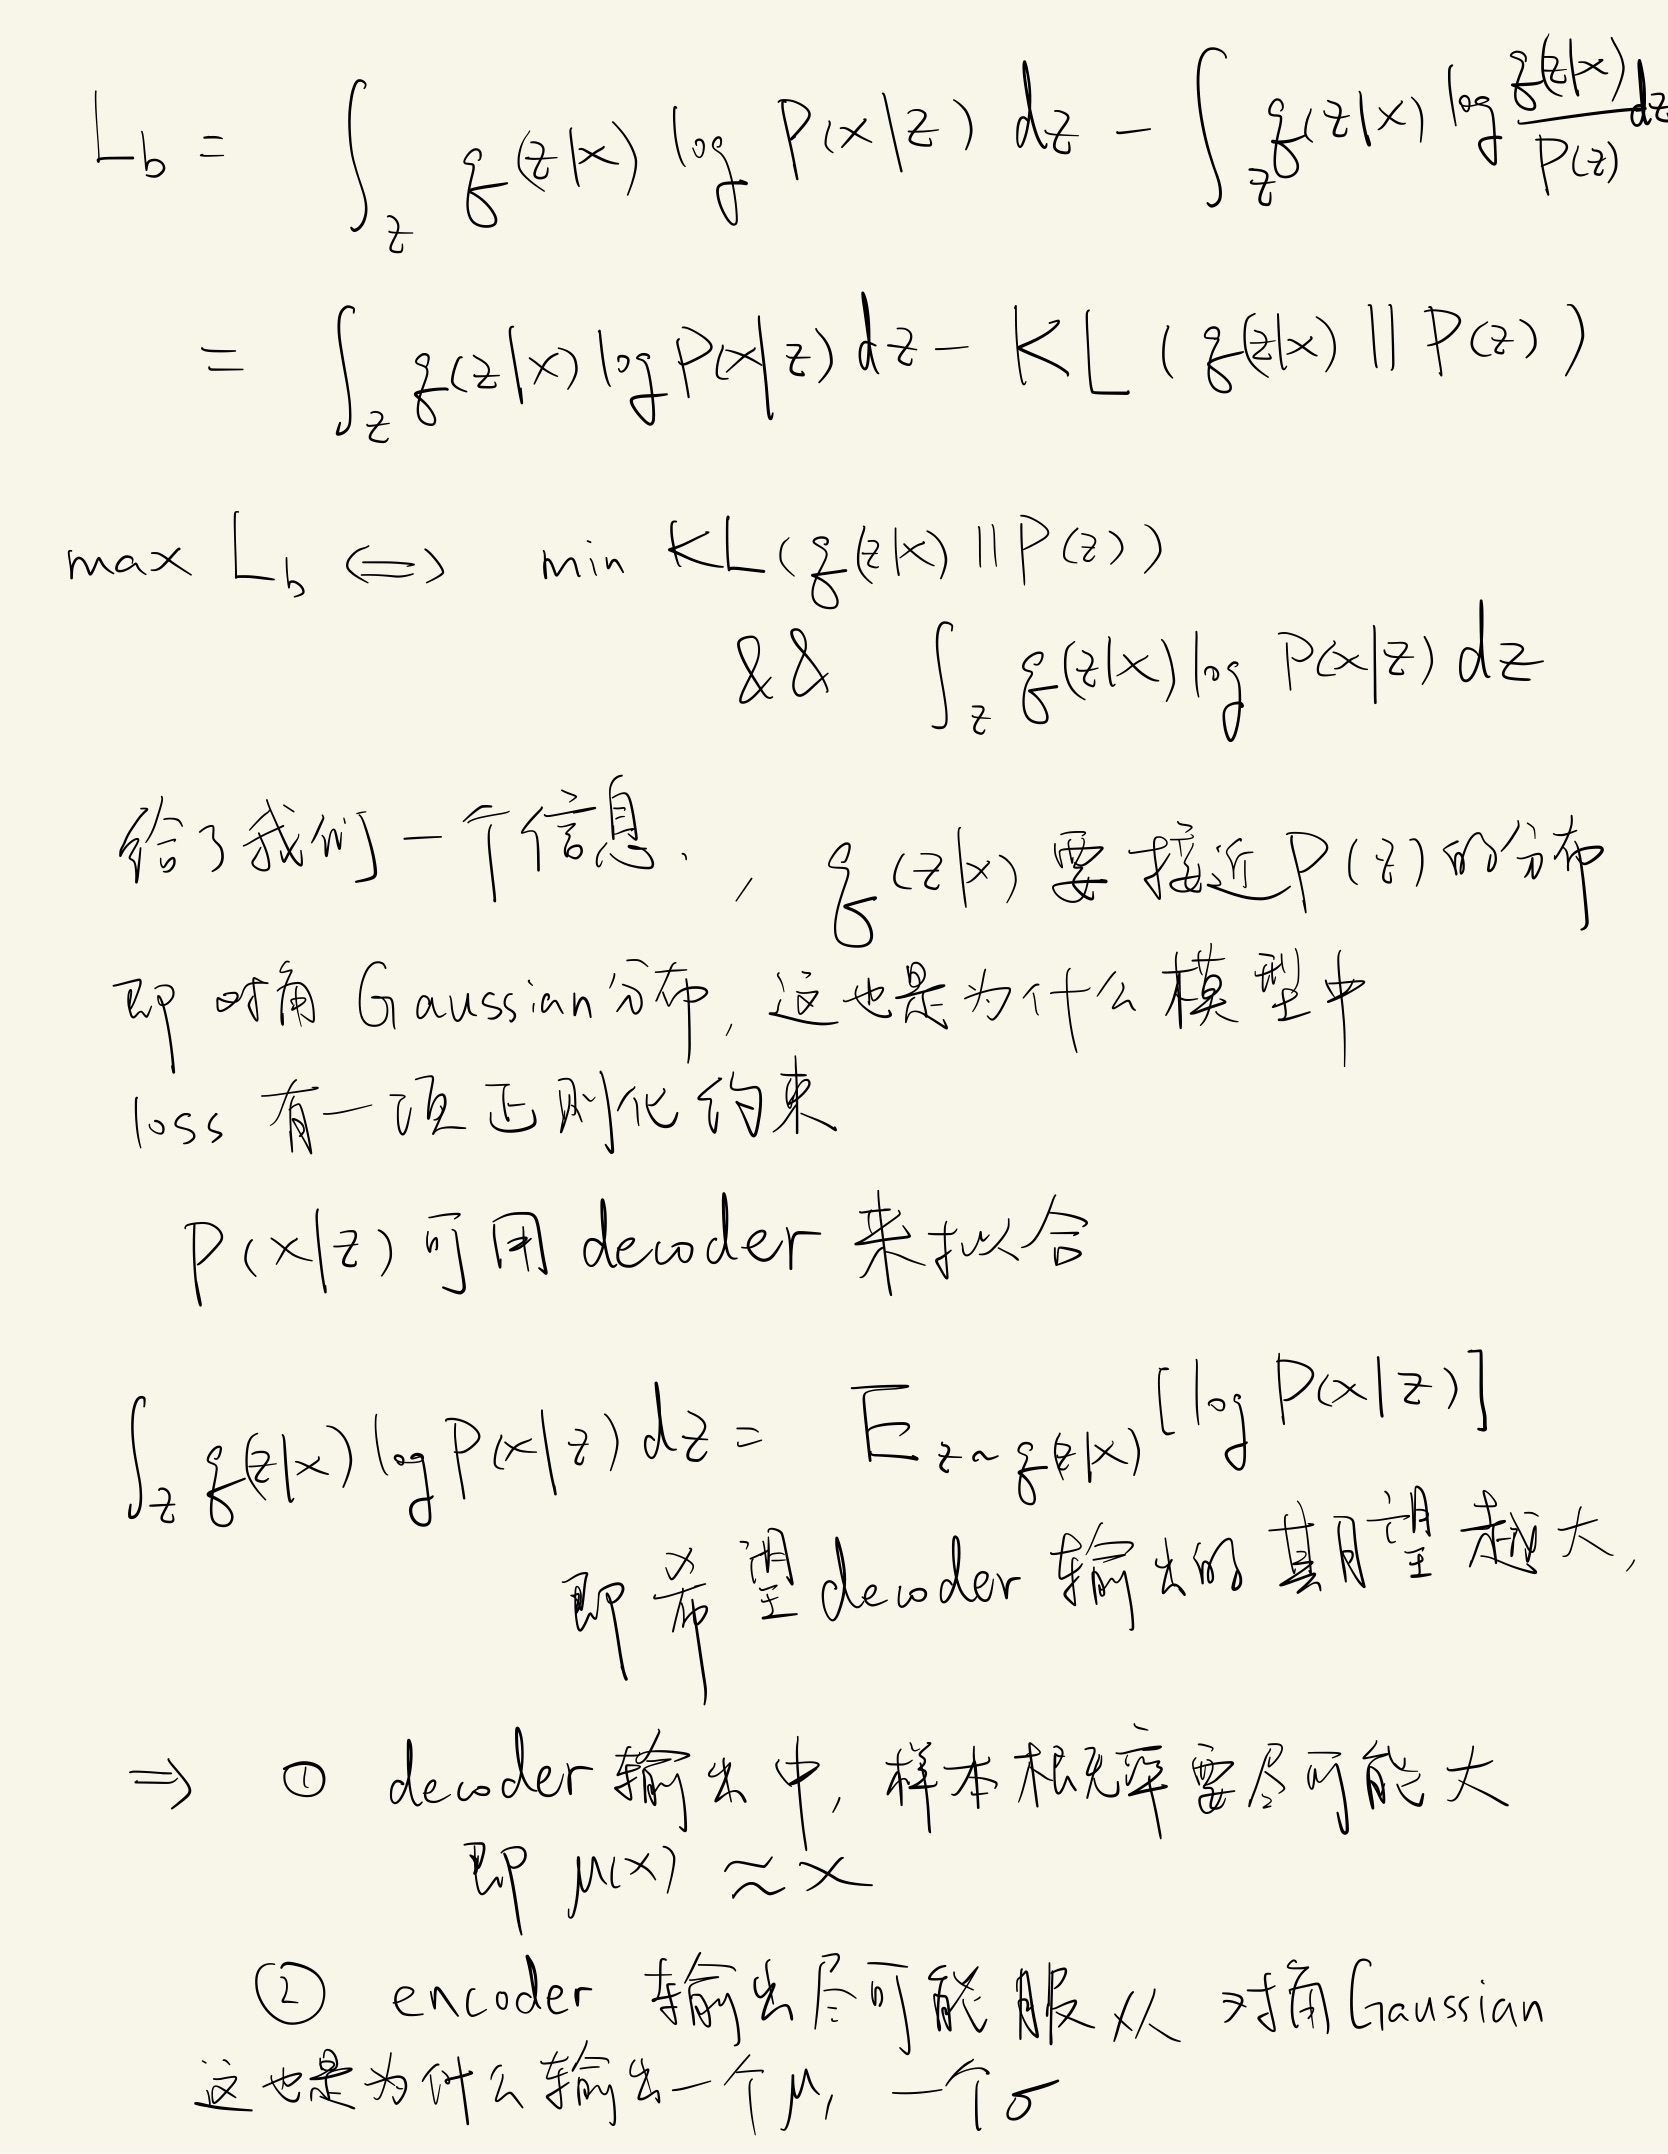 L_b = ∫_z q(z|x) log P(x|z) dz - ∫_z q(z|x) log q(z|x)/P(z) dz
= ∫_z q(z|x) log P(x|z) dz - KL (q(z|x) || P(z))
max L_b ⇔ min KL(q(z|x) || P(z))
&& ∫_z q(z|x) log P(x|z) dz
给了我们一个信息、, q(z|x) 要接近P(z)的分布
即 对角 Gaussian分布, 这也是为什么模型中
loss 有一项正则化约束
P(x|z) 可用 decoder 来拟合
∫_z q(z|x) log P(x|z) dz = E_{z~q(z|x)} [log P(x|z)]
即希望decoder输出的期望越大,
⇒ ① decoder输出中, 样本概率要尽可能大
即 μ(x) ≈ x
② encoder 输出尽可能服从 对角Gaussian
这也是为什么输出一个μ, 一个σ